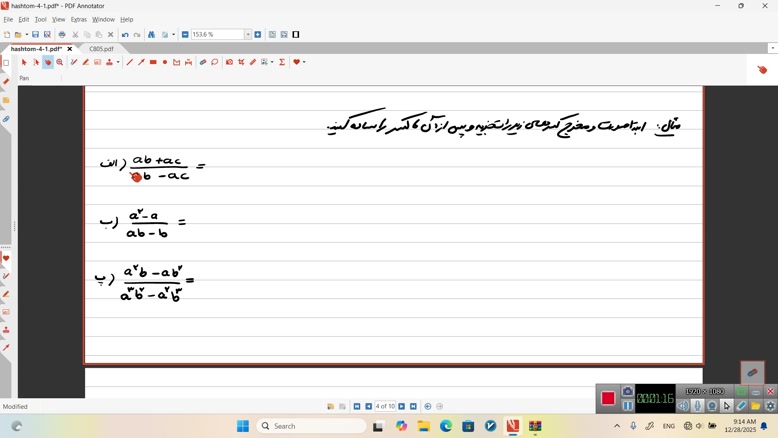 hashtom-4-1.pdf* - PDF Annotator
File Edit Tool View Extras Window Help
153.6 %
hashtom-4-1.pdf* C805.pdf
Pan
مثال: ابتدا صورت و مخرج کسرهای زیر را تجزیه و پس از آن کسر را ساده کنید.
الف) (ab + ac)/(ab - ac) =
ب) (a² - a)/(ab - b) =
پ) (a²b - ab²)/(a³b² - a²b³) =
Modified
4 of 10
1920 × 1080
00:01:16
Search
ENG
9:14 AM
12/28/2025